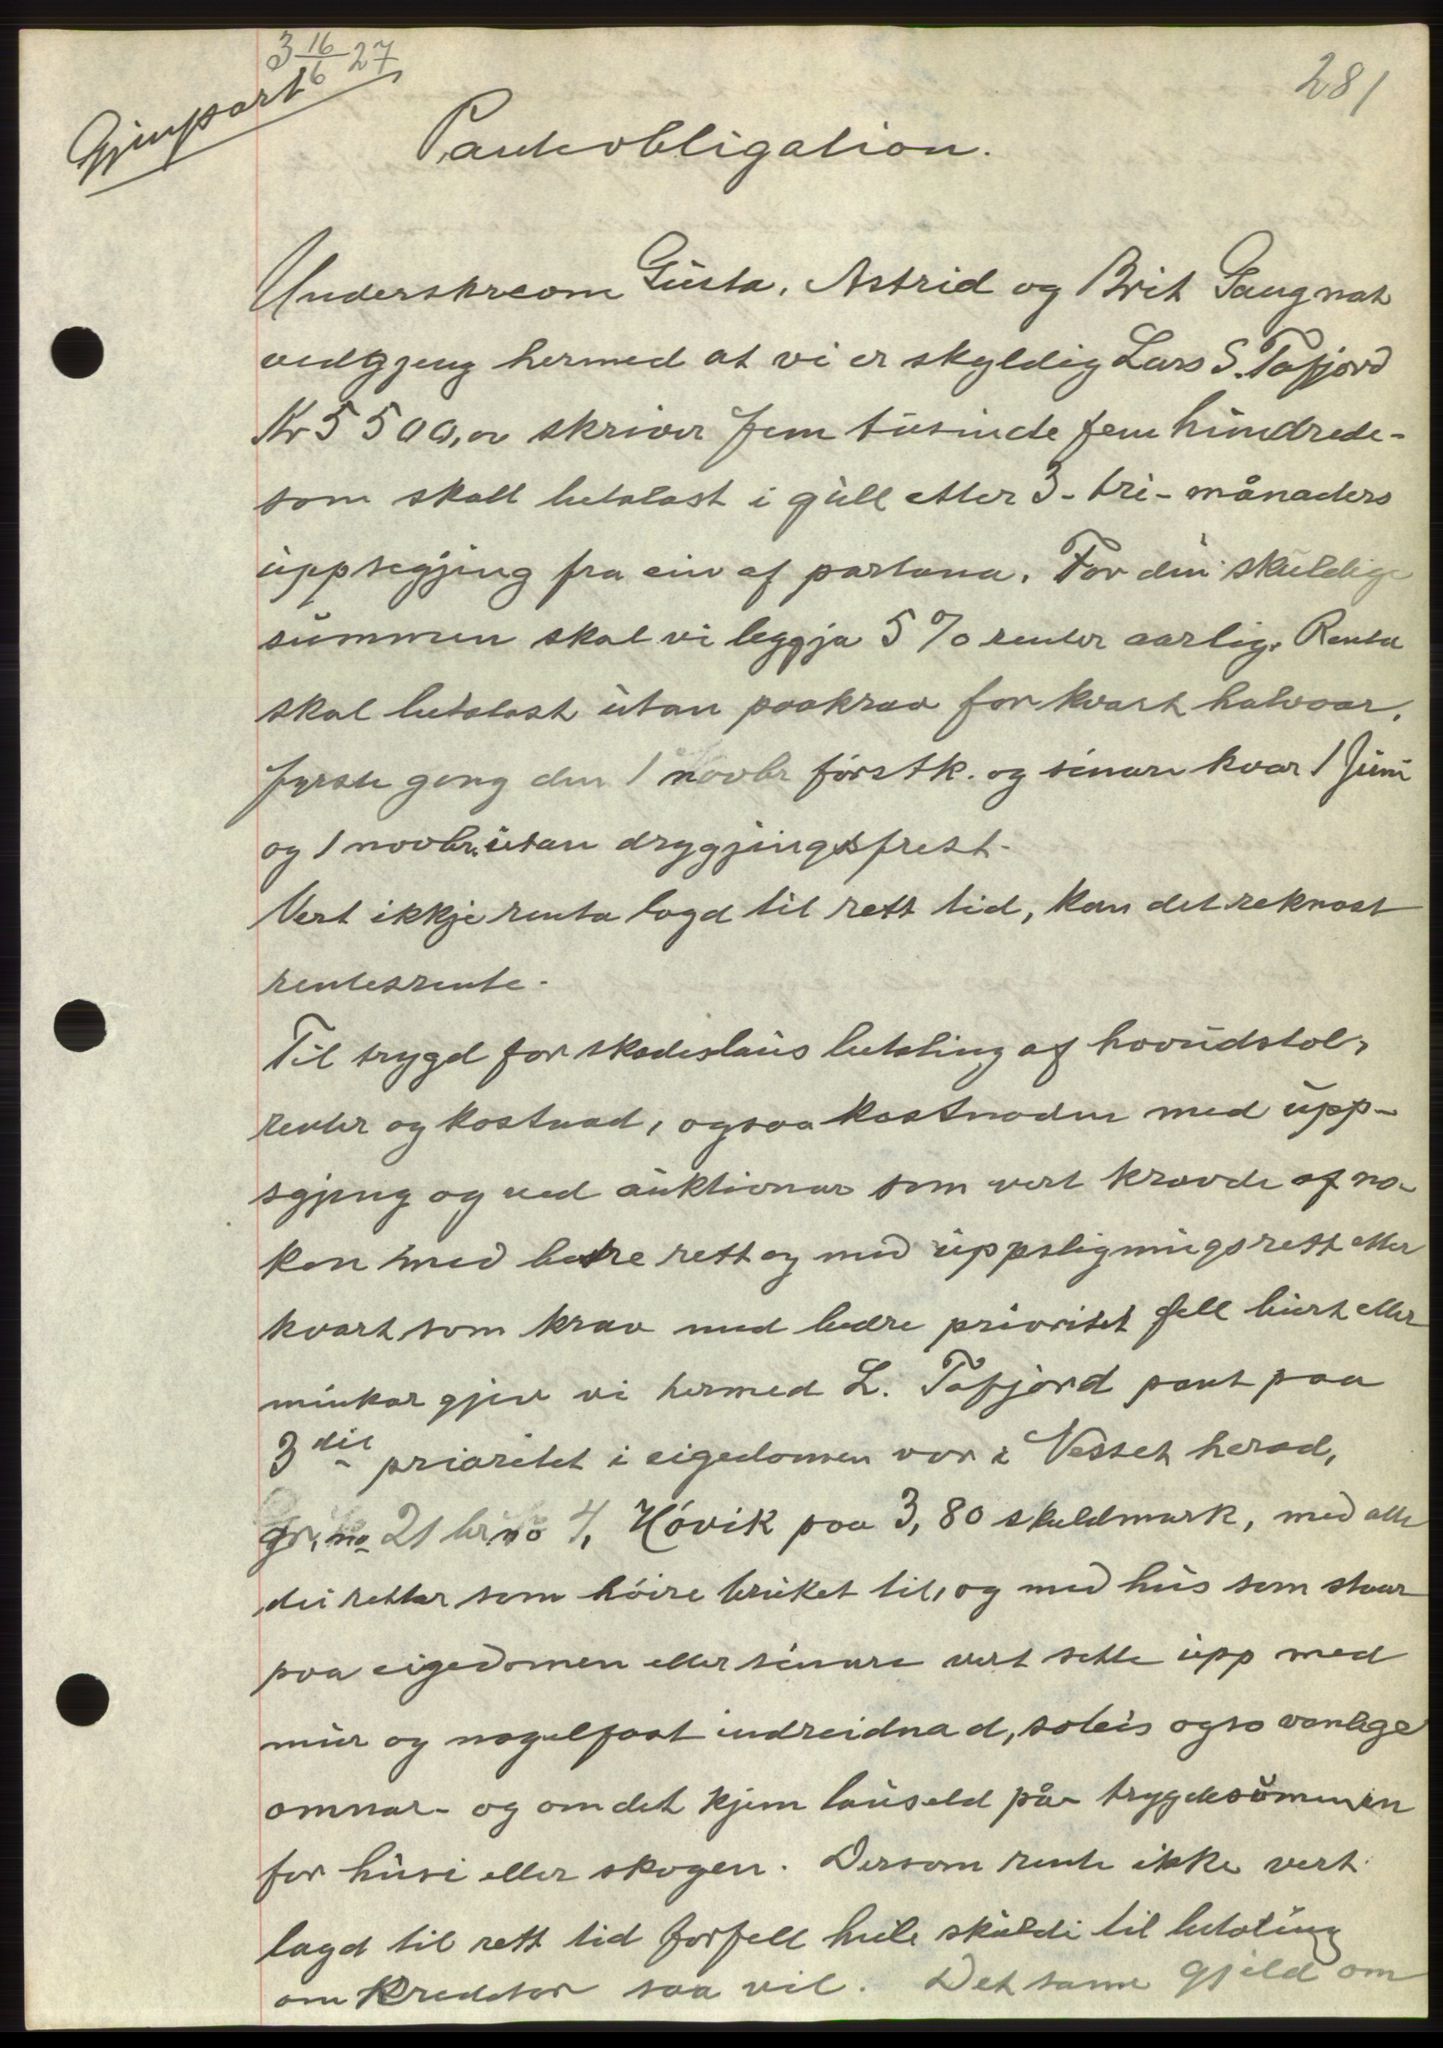 3 16/6 27
281
Gjenpart
Panteobligation.
Underskreone Gusta, Astrid og Brit Gaugnat
vedgjeng hermed at vi er skyldig Lars S. Tafjord
Kr 5500,00 skriver fem tusinde fem hundrede-
som skall betalast i gull etter 3- tri- månaders
uppsegjing fra ein af partana. For den skuldige
summen skal vi leggja 5 % renter aarlig. Renta
skal betalast utan paakrav for kvart halvaar,
fyrste gong den 1 novbr førstk. og sinare kvar 1 Juni
og 1 novbr. utan drygjingsfrest.
Vert ikkje renta lagd til rett tid, kan det reknast
rentesrente.
Til trygd for skadeslaus betaling af hovudstol,
renter og kostnad, ogsaa kostnaden med upp-
sgjing og ved auktionar som vert kravde af no-
ken med betre rett og med uppsligningsrett etter
kvart som krav med bedre prioritet fell burt eller
minkar gjev vi hermed L. Tafjord pant paa
3die prioritet i eigedomen vor i Vestnes herad,
gr. no 21 br. no 4, Hóvik paa 3,80 skuldmark, med alle
dei retter som hóire bruket til, og med hus som staar
paa eigedomen eller sinare vert sette upp med
mur og nagelfast indreidnad, soleis ogso vanlege
omnar- og om det kjem lauseld på- trygdesummen
for husi eller skogen. Dersom rente ikke vert
lagd til rett tid forfell heile skuldi til betaling
om Kreditor saa vil. Det same gjeld om